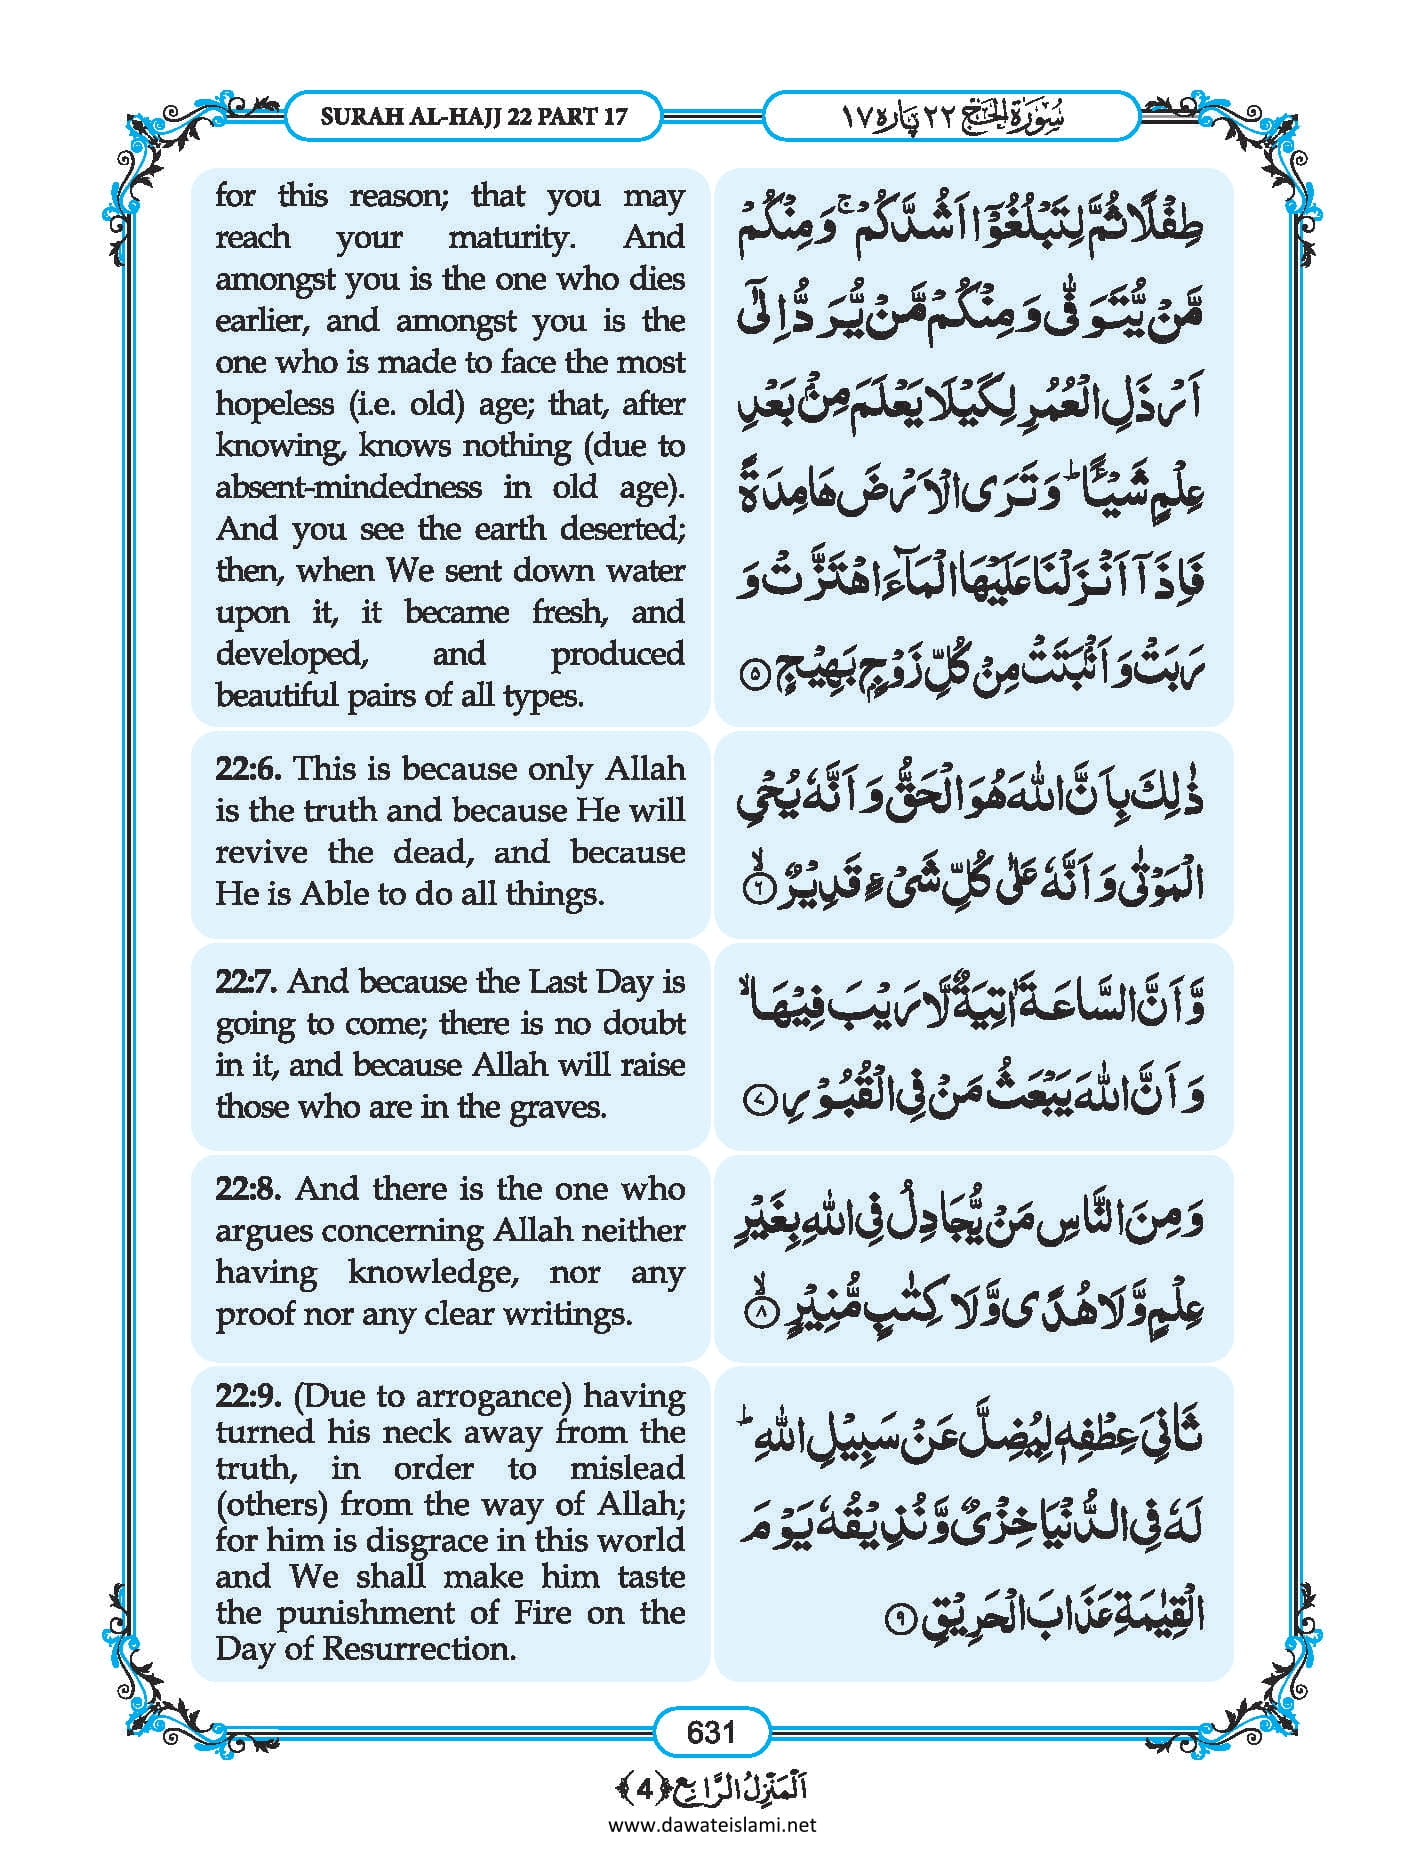 SURAH AL-HAJJ 22 PART 17
سُوْرَةُ الْحَجّ ٢٢ پَارہ ١٧
for this reason; that you may
reach your maturity. And
amongst you is the one who dies
earlier, and amongst you is the
one who is made to face the most
hopeless (i.e. old) age; that, after
knowing, knows nothing (due to
absent-mindedness in old age).
And you see the earth deserted;
then, when We sent down water
upon it, it became fresh, and
developed, and produced
beautiful pairs of all types.
طِفْلًا ثُمَّ لِتَبْلُغُوْۤا اَشُدَّكُمْ ۚ وَ مِنْكُمْ
مَّنْ یُّتَوَفّٰى وَ مِنْكُمْ مَّنْ یُّرَدُّ اِلٰۤى
اَرْذَلِ الْعُمُرِ لِكَیْلَا یَعْلَمَ مِنْۢ بَعْدِ
عِلْمٍ شَیْــٴًـاؕ وَ تَرَى الْاَرْضَ هَامِدَةً
فَاِذَاۤ اَنْزَلْنَا عَلَیْهَا الْمَآءَ اهْتَزَّتْ وَ
رَبَتْ وَ اَنْۢبَتَتْ مِنْ كُلِّ زَوْجٍۭ بَهِیْجٍ ۝٥
22:6. This is because only Allah
is the truth and because He will
revive the dead, and because
He is Able to do all things.
ذٰلِكَ بِاَنَّ اللّٰهَ هُوَ الْحَقُّ وَ اَنَّهٗ یُحْیِ
الْمَوْتٰى وَ اَنَّهٗ عَلٰى كُلِّ شَیْءٍ قَدِیْرٌۙ ۝٦
22:7. And because the Last Day is
going to come; there is no doubt
in it, and because Allah will raise
those who are in the graves.
وَّ اَنَّ السَّاعَةَ اٰتِیَةٌ لَّا رَیْبَ فِیْهَاۙ
وَ اَنَّ اللّٰهَ یَبْعَثُ مَنْ فِی الْقُبُوْرِ ۝٧
22:8. And there is the one who
argues concerning Allah neither
having knowledge, nor any
proof nor any clear writings.
وَ مِنَ النَّاسِ مَنْ یُّجَادِلُ فِی اللّٰهِ بِغَیْرِ
عِلْمٍ وَّ لَا هُدًى وَّ لَا كِتٰبٍ مُّنِیْرٍۙ ۝٨
22:9. (Due to arrogance) having
turned his neck away from the
truth, in order to mislead
(others) from the way of Allah;
for him is disgrace in this world
and We shall make him taste
the punishment of Fire on the
Day of Resurrection.
ثَانِیَ عِطْفِهٖ لِیُضِلَّ عَنْ سَبِیْلِ اللّٰهِؕ
لَهٗ فِی الدُّنْیَا خِزْیٌ وَّ نُذِیْقُهٗ یَوْمَ
الْقِیٰمَةِ عَذَابَ الْحَرِیْقِ ۝٩
631
اَلْمَنْزِلُ الرَّابِع ﴿4﴾
www.dawateislami.net